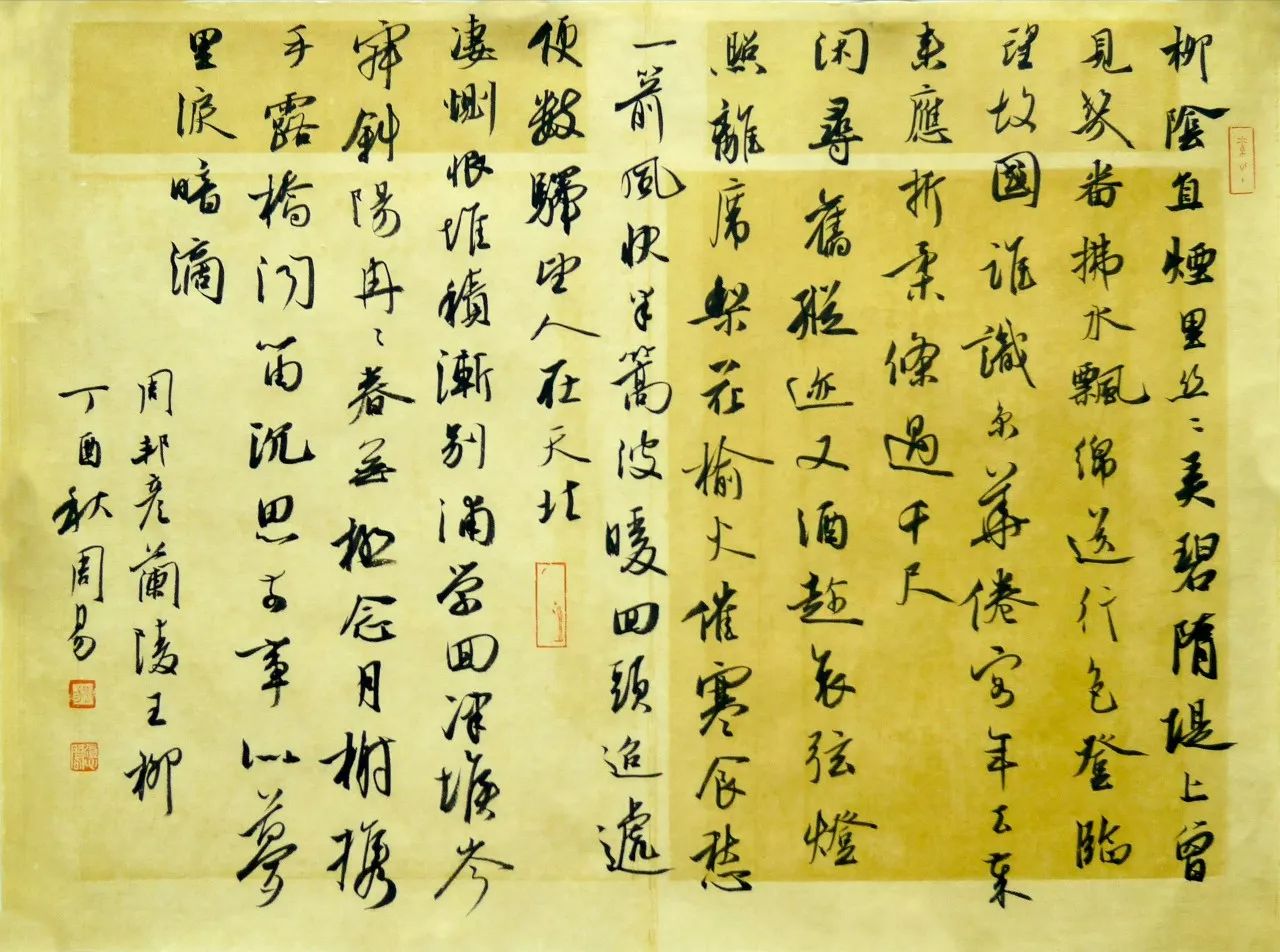 柳陰直煙里丝〻弄碧隋堤上曾
見幾番拂水飄綿送行色登臨
望故國誰識京華倦客年去來
來應折柔條過千尺
闲尋舊蹤迹又酒趁哀弦燈
照離席梨花榆火催寒食愁
一箭風快半篙波暖回頭迢遞
便數驛望人在天北
凄惻恨堆積漸别浦縈回津堠岑
寂斜陽冉〻春無極念月榭携
手露橋闻笛沉思前事似夢
里淚暗滴
周邦彦蘭陵王柳
丁酉秋周易